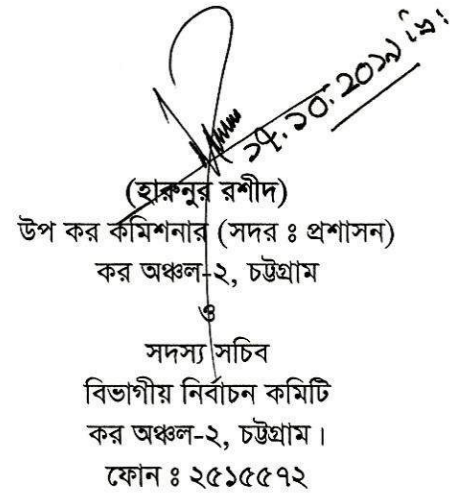 ২৭.১০.২০১৯ খ্রি:
(হারুনুর রশীদ)
উপ কর কমিশনার (সদর ঃ প্রশাসন)
কর অঞ্চল-২, চট্টগ্রাম
ও
সদস্য সচিব
বিভাগীয় নির্বাচন কমিটি
কর অঞ্চল-২, চট্টগ্রাম।
ফোন ঃ ২৫১৫৫৭২